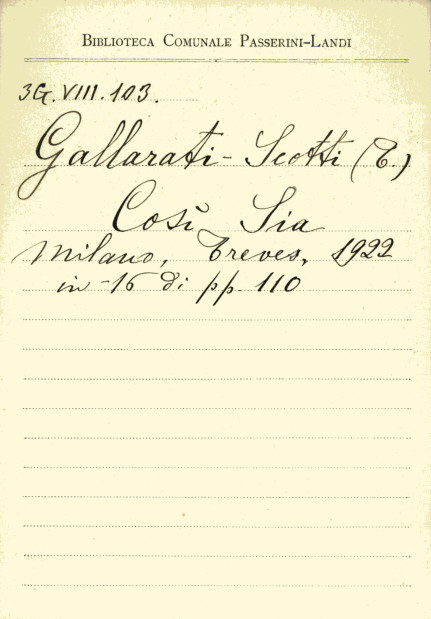 BIBLIOTECA COMUNALE PASSERINI-LANDI
3G. VIII. 103.
Gallarati-Scotti (T.)
Così Sia
Milano, Treves, 1922
in-16 di pp. 110